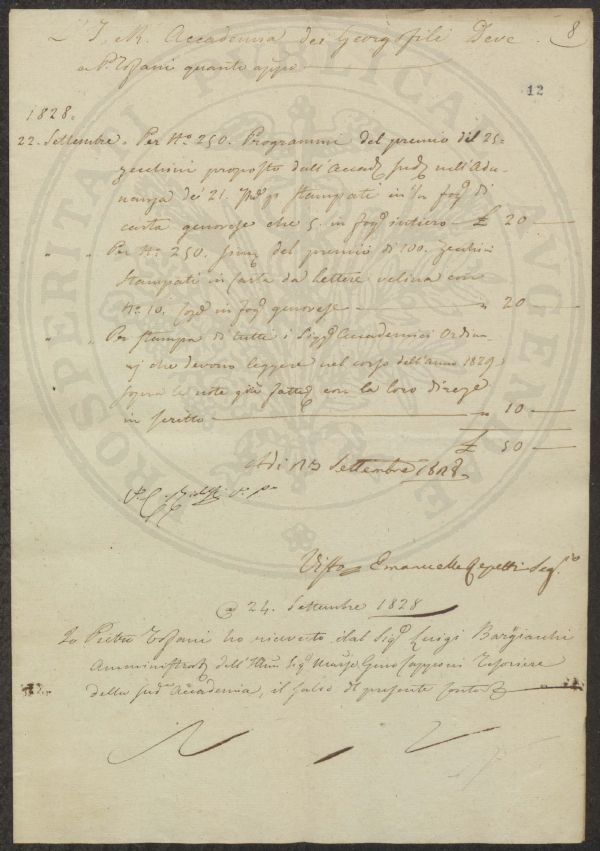 L'I. e R. Accademia dei Georgofili Deve 8
a P. Toffani quanto appo
12
1828.
22. Settembre. Per No. 250. Programmi del premio del 25.
zecchini proposto dall'Accad. sud. nell'Adu-
nanza de' 21. stampati in fog. di
carta genovese che 5. in fog. intiero £ 20
" " Per No. 250. del premio di 100. Zecchini
stampati in Carta da lettere velina con
No. 10. in fog. genovese " 20
" " Per stampa di tutti i Sigg. Accademici Ordina-
rj che devono leggere nel corso dell'anno 1829
sopra le note già fatte con la loro direze
in scritto " 10
£ 50
Adi 23 Settembre 1828.
Visto Emanuelle Repetti Seg.
@ 24. Settembre 1828
Io Pietro Toffani ho ricevuto dal Sig. Luigi Bargiacchi
Amministrat. dell'Illmo Sig. March. Gino Capponi Tesoriere
della sud. Accademia, il saldo del presente Conto
PROSPERITATI PUBLICAE AUGENDAE